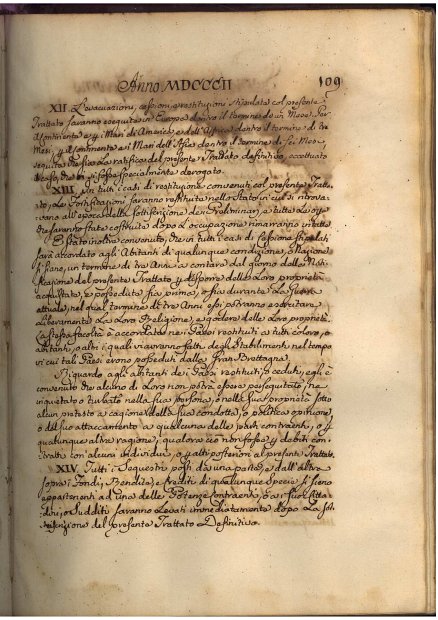 Anno MDCCCII 109
XII. L'evacuazioni, cessioni, e restituzioni stipulate col presente
Trattato saranno eseguite in Europa dentro il termine di un Mese, pel
Continente e i Mari di America, e dell'Affrica dentro il termine di tre
Mesi, e pel Continente e i Mari dell'Asia dentro il termine di sei Mesi,
seguita che sia la ratifica del presente Trattato definitivo, eccettuato
il caso, in cui si fosse specialmente derogato.
XIII. In tutti i casi di restituzione convenuti col presente Tratta-
to, le Fortificazioni saranno restituite nello Stato in cui si ritrova-
vano all'epoca della sottoscrizione dei Preliminari, e tutte le opere
che saranno state costruite dopo l'occupazione rimarranno intatte
E' stato inoltre convenuto, che in tutti i casi di Cessione stipulati
sarà accordato agli Abitanti di qualunque condizione, o Nazione
si sieno, un termine di tre Anni a contare dal giorno della Noti-
ficazione del presente Trattato per disporre delle loro proprietà
acquistate, e possedute sia prima, o sia durante la Guerra
attuale, nel qual termine di tre Anni essi potranno esercitare
liberamente la loro Religione, e godere delle loro proprietà.
La stessa facoltà è accordata nei Paesi restituiti a tutti coloro, o
abitanti, o altri i quali vi avranno fatti degli Stabilimenti nel tempo
in cui tali Paesi erono posseduti dalla Gran Brettagna.
Riguardo agli abitenti de i Paesi restituiti, o ceduti, egli è
convenuto che alcuno di loro non potrà essere perseguitato, ne
inquietato o turbato nella sua persona, o nella sua proprietà sotto
alcun pretesto a cagione della sua condotta, o politica opinione,
o del suo attaccamento a qualcuna delle parti contraenti, o per
qualunque altra ragione, qualora ciò non fosse per debiti con-
tratti con alcuni individui, o per atti posteriori al presente Trattato.
XIV. Tutti i Sequestri posti da una parte, e dall'altra
sopra i Fondi, Rendite, e Crediti di qualunque Specie si sieno
appartenenti ad una delle Potenze Contraenti, o a i suoi Citta-
dini, o Sudditi saranno levati immediatamente dopo la sot-
toscrizione del presente Trattato Definitivo.